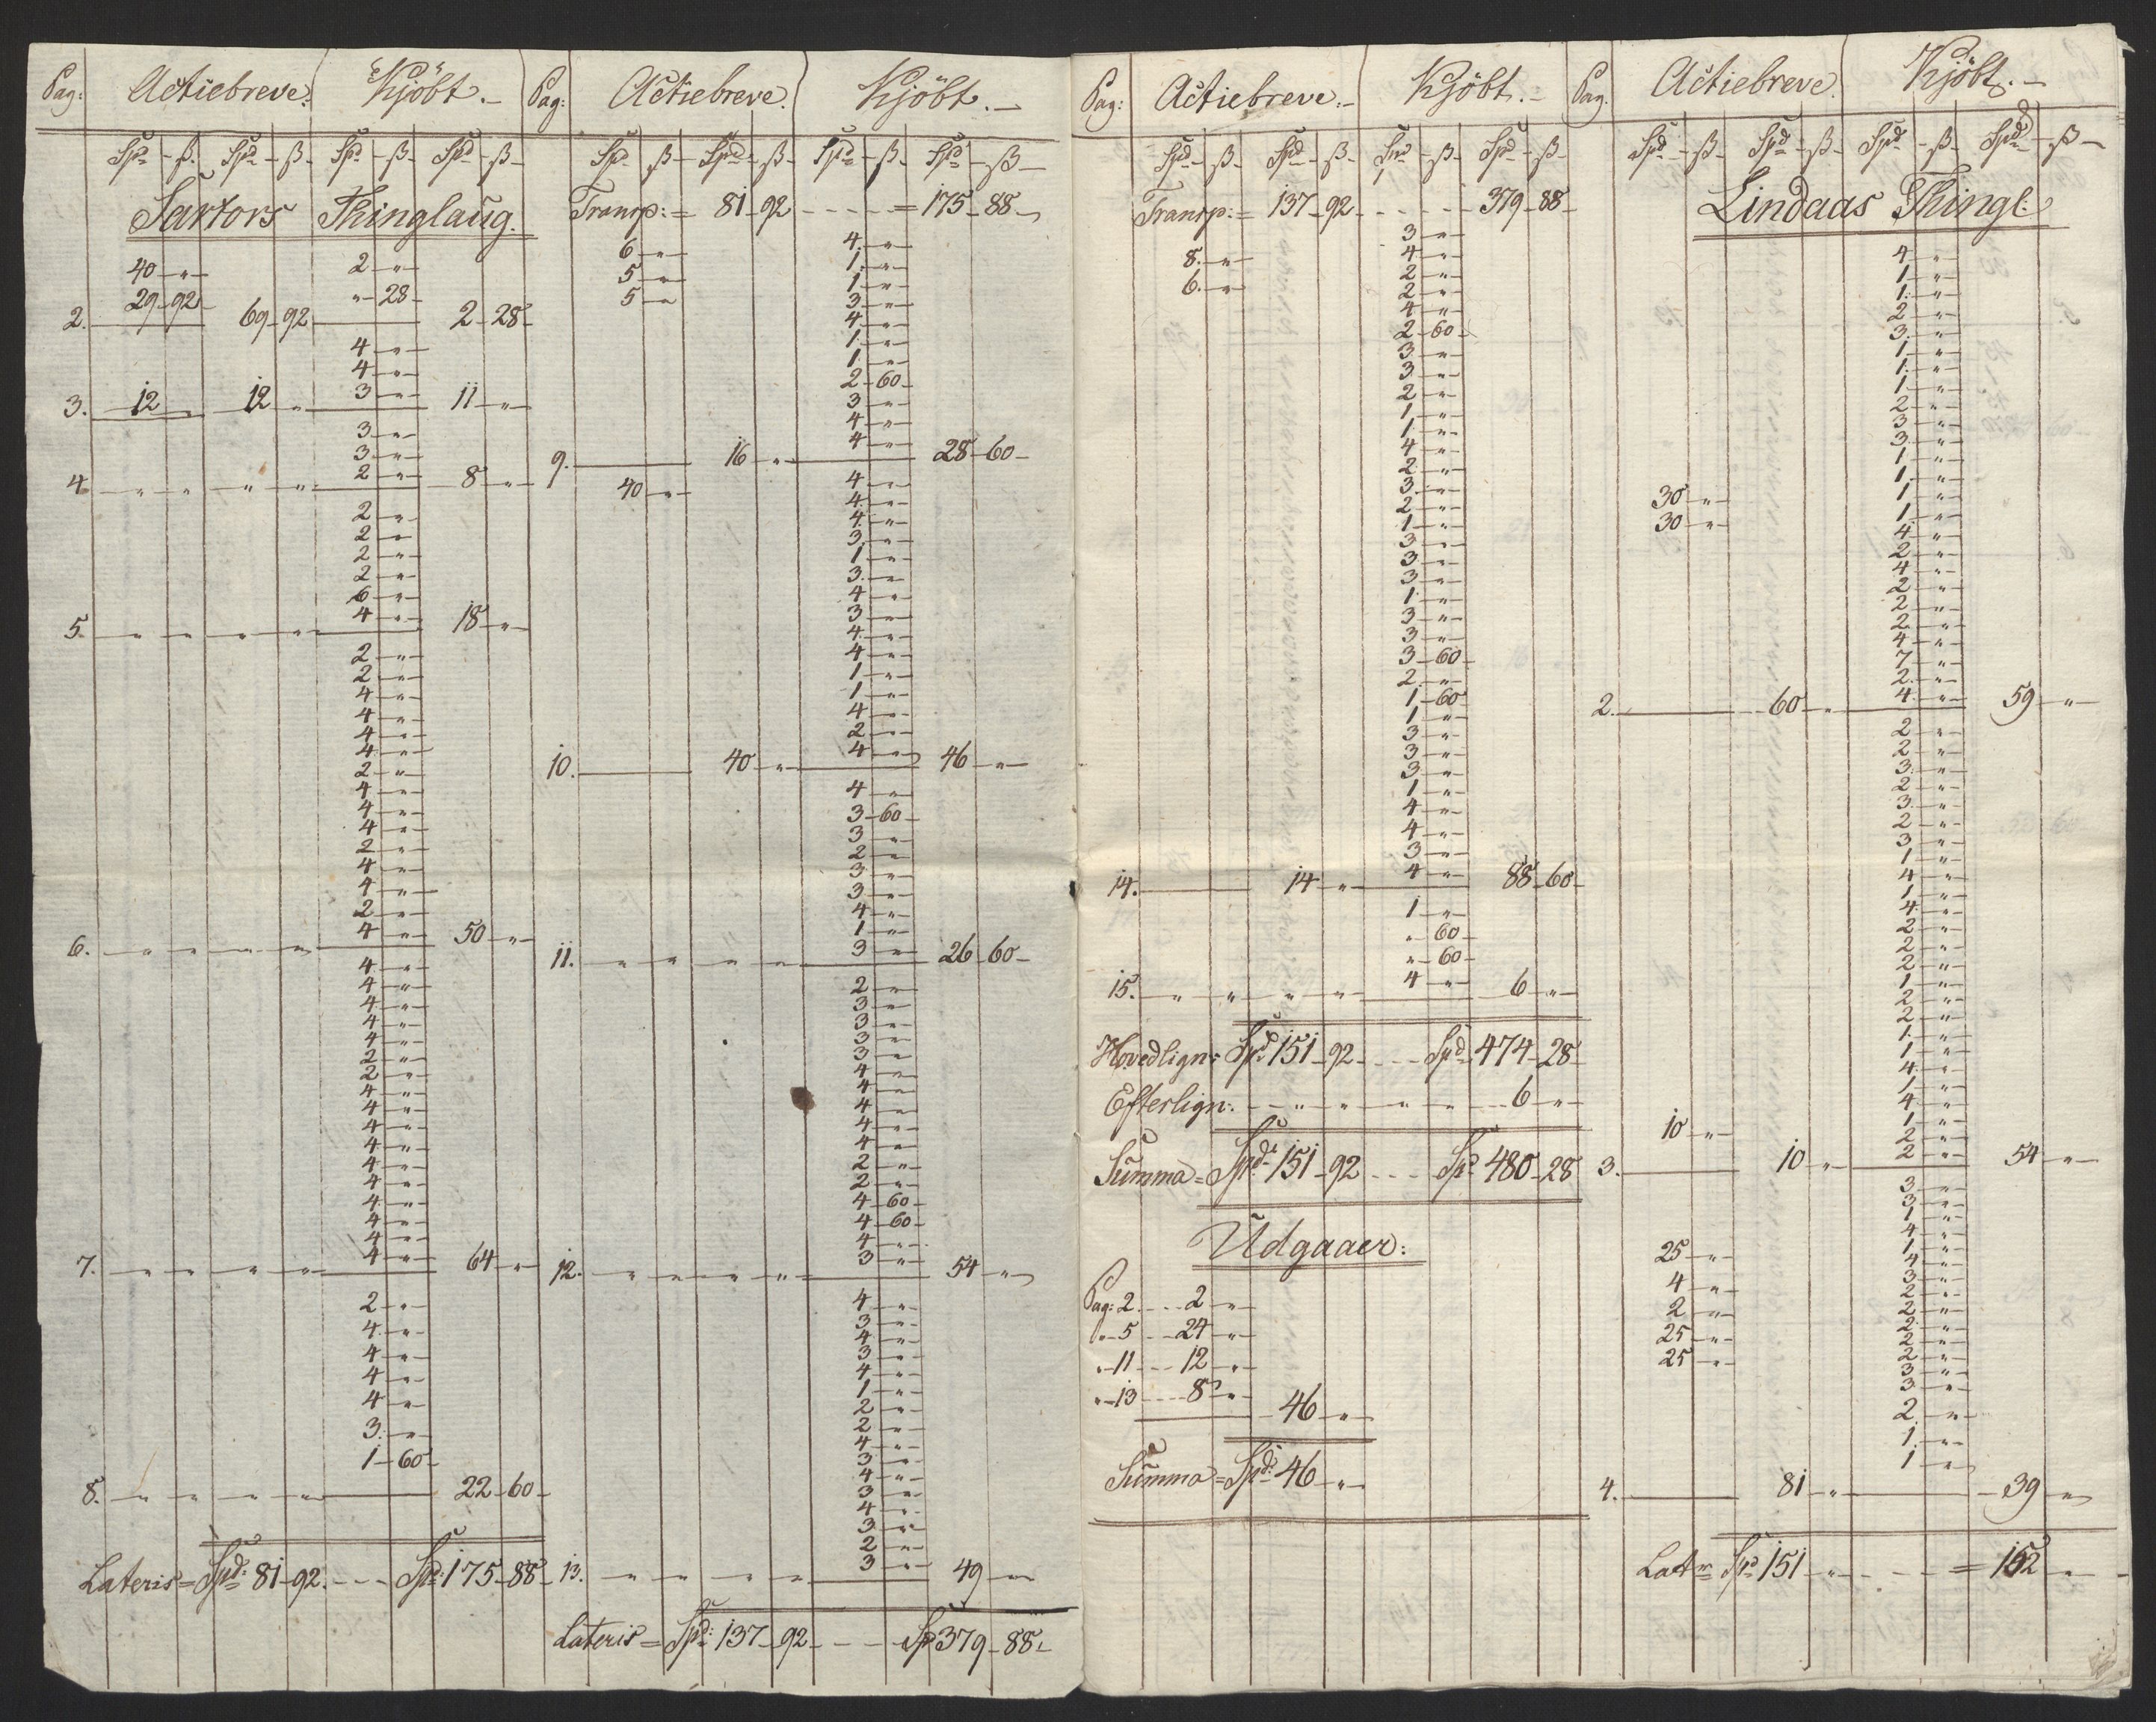 Pag: Actiebreve. Kjöbt.
Spd ß Spd ß Spd ß Spd ß
Sartors Thinglaug.
40 " 2 "
29 92 " 28
2. 69 92 2 28
4 "
4 "
3. 12 12 " 3 " 11 "
3 "
3 "
4. " " " " 2 " 8 "
2 "
2 "
2 "
2 "
6 "
5. " " " " 4 " 18 "
2 "
2 "
4 "
4 "
4 "
4 "
2 "
4 "
4 "
4 "
2 "
4 "
4 "
2 "
6. " " " " 4 " 50 "
4 "
4 "
4 "
4 "
4 "
2 "
2 "
4 "
4 "
4 "
4 "
4 "
4 "
4 "
4 "
4 "
7. " " " " 4 " 64 "
2 "
4 "
4 "
4 "
4 "
3 "
1 60
8. " " " " 22 60
Lateris = Spd: 81 92 Spd: 175 88
Pag: Actiebreve. Kjöbt.
Spd ß Spd ß Spd ß Spd ß
Transp: = 81 92 = 175 88
6 " 4 "
5 " 1 "
5 " 1 "
3 "
4 "
1 "
1 "
2 60
3 "
4 "
9. 16 " 4 " 28 60
40 " 4 "
4 "
4 "
3 "
1 "
3 "
4 "
3 "
4 "
4 "
1 "
1 "
4 "
2 "
10. 40 " 4 " 46 "
4 "
3 60
3 "
2 "
3 "
3 "
4 "
1 "
11. " " " " 3 " 26 60
2 "
3 "
3 "
3 "
3 "
4 "
4 "
4 "
4 "
4 "
2 "
2 "
4 60
4 60
4 "
12. " " " " 3 " 54 "
4 "
3 "
4 "
3 "
4 "
1 "
2 "
2 "
4 "
3 "
4 "
3 "
4 "
3 "
2 "
13. " " " " 3 " 49 "
Lateris = Spd: 137 92 Sp 379 88
Pag: Actiebreve. Kjöbt.
Spd ß Spd ß Spd ß Spd ß
Transp: = 137 92 379 88
3 "
8. " 4 "
6. " 2 "
2 "
4 "
2 60
3 "
3 "
2 "
1 "
1 "
4 "
2 "
3 "
2 "
1 "
3 "
3 "
3 "
1 "
3 "
3 "
3 60
2 "
1 60
1 "
3 "
3 "
3 "
1 "
4 "
4 "
3 "
14. 14 " 4 " 88 60
1 "
" 60
" 60
15. " " " " 4 " 6 "
Hovedlign: Spd 151 92 Spd 474 28
Efterlign: " " " " 6 "
Summa = Spd 151 92 Spd 480 28
Udgaaer:
Pag: 2 2 "
" 5 24 "
" 11 12 "
" 13 8 " 46 "
Summa = Spd: 46 "
Pag. Actiebreve. Kjöbt.
Spd ß Spd ß Spd ß Spd ß
Lindaas Thingl:
4 "
1 "
1 "
2 "
3 "
1 "
1 "
1 "
2 "
3 "
3 "
1 "
1 "
30 " 1 "
30 " 1 "
4 "
2 "
4 "
2 "
2 "
2 "
4 "
7 "
2 "
2. 60 " 4 " 59 "
2 "
2 "
3 "
2 "
3 "
2 "
3 "
1 "
4 "
1 "
4 "
2 "
2 "
2 "
1 "
2 "
2 "
1 "
1 "
4 "
1 "
4 "
10 " 1 "
2 "
3. 10 " 2 " 54 "
3 "
3 "
1 "
4 "
25 " 1 "
4 "
4 " 3 "
2 "
2 " 2 "
25 " 2 "
2 "
25 " 2 "
3 "
3 "
2 "
1 "
1 "
4. 81 " 39 "
Lat Spd 151 " = 152 "